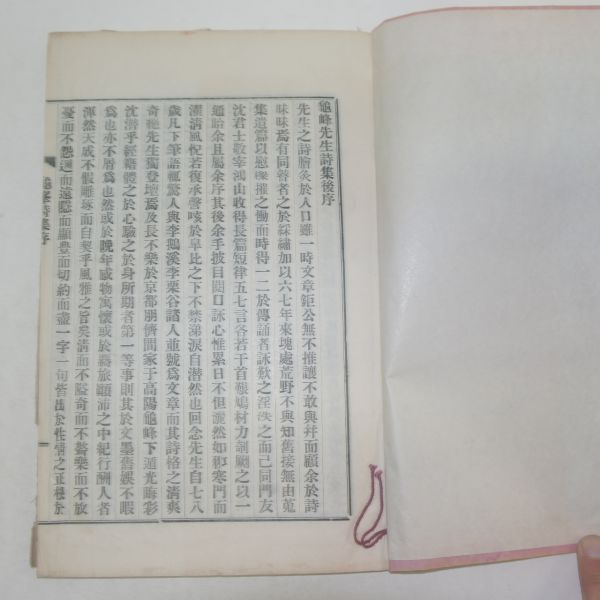 龜峰先生詩集後序
先生之詩膾炙於人口雖一時文章鉅公無不推讓不敢與幷而顧余於詩
昧昧焉有同瞽者之於綵繡加以六七年來塊處荒野不與知舊接無由蒐
集遺篇以慰摧之慟而時得一二於傳誦者詠歎之淫泆之而已同門友
沈君士敬宰鴻山收得長篇短律五七言各若干首鳩材力剞劂之以一
通貽余且屬余序其後余手披目閱口詠心惟累日不但灑然如寒門而
濯淸風怳若復承謦咳於皐比之下不禁涕淚自潸然也回念先生自七八
歲凡下筆語輒驚人與李鵝溪李栗谷諸人並號爲文章而其詩格之淸爽
奇絶先生獨登壇焉及長不樂於京都朋儕間家于高陽龜峰下遁光晦彩
沈潛乎經籍體之於心驗之於身所期者第一等事則其於文墨舊娛不暇
爲也亦不屑爲也然或於晩年感物寓懷或於羇旅顚沛之中紀行酬人者
渾然天成不假雕琢而自契乎風雅之旨矣淸而不隘奇而不騖樂而不放
憂而不怨邇而遠隱而顯豊而切約而盡一字一句皆出於性情之正
龜峯詩集序